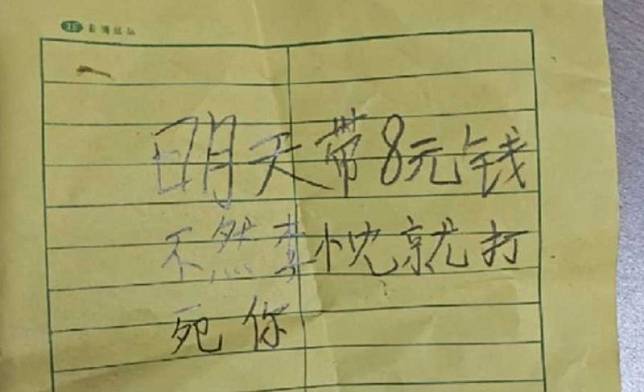 明天带8元钱
不然李小忱就打
死你